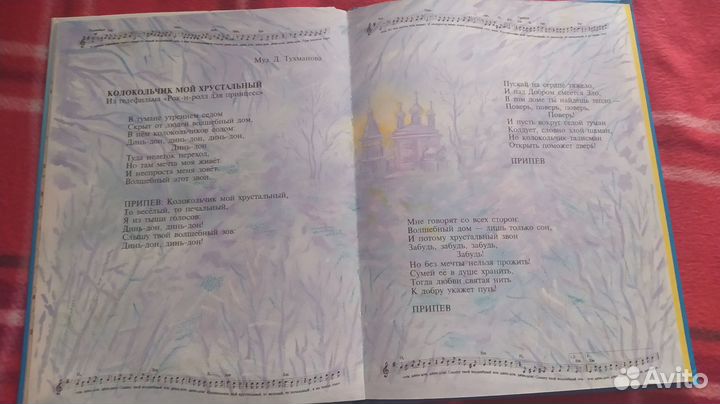 Муз. Д. Тухманова
КОЛОКОЛЬЧИК МОЙ ХРУСТАЛЬНЫЙ
Из телефильма «Рок-н-ролл для принцесс»
В тумане утреннем седом
Скрыт от людей волшебный дом,
В нём колокольчиков фодом
Динь-дон, динь-дон, динь-дон,
Динь-дон
Туда нелёгок переход,
Но там мечта моя живёт
И неспроста меня зовёт
Волшебный этот звон.
ПРИПЕВ: Колокольчик мой хрустальный,
То весёлый, то печальный,
Я из тыщи голосов:
Динь-дон, динь-дон!
Слышу твой волшебный зов
Динь-дон, динь-дон!
Пускай на сердце тяжело,
И над Добром смеётся Зло,
В том доме ты найдёшь тепло —
Поверь, поверь, поверь,
Поверь!
И пусть вокруг седой туман
Колдует, словно злой шаман,
Но колокольчик-талисман
Открыть поможет дверь!
ПРИПЕВ
Мне говорят со всех сторон:
Волшебный дом — лишь только сон,
И потому хрустальный звон
Забудь, забудь, забудь,
Забудь!
Но без мечты нельзя прожить!
Сумей её в душе хранить,
Тогда любви святая нить
К добру укажет путь!
ПРИПЕВ
Avito